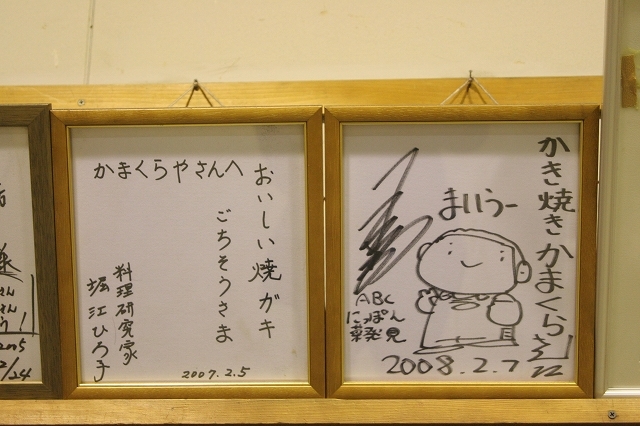 かまくらやさんへ
おいしい焼ガキ
ごちそうさま
料理研究家
堀江ひろ子
2007.2.5
かき焼きかまくらさん江
まいうー
ABC
にっぽん
菜発見
2008.2.7
2/24